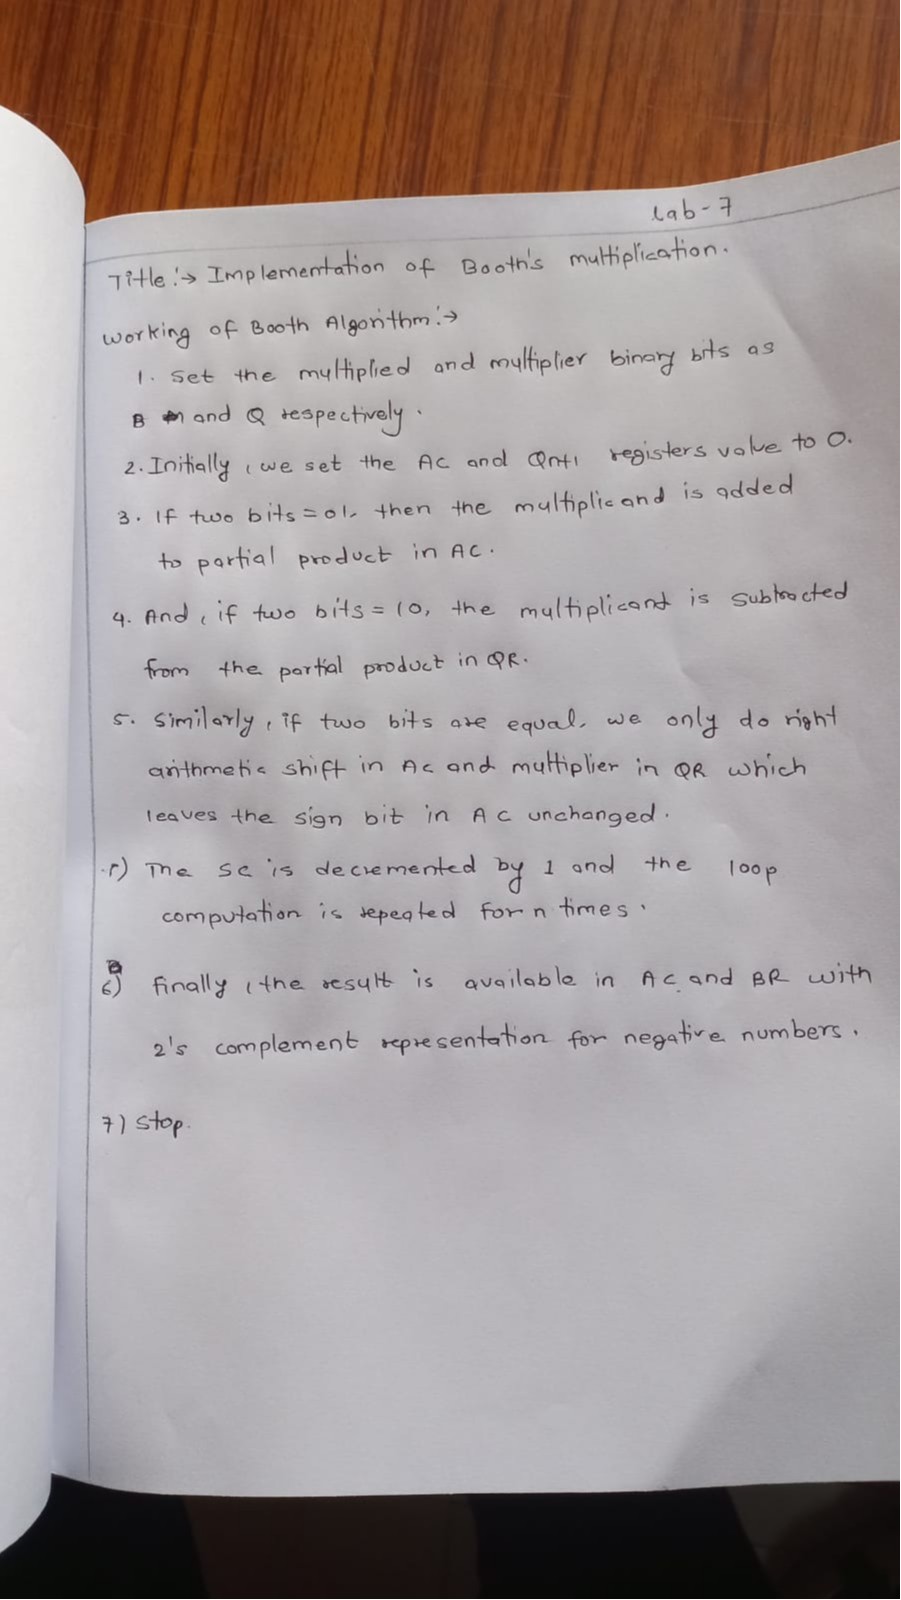 Lab-7
Title:→ Implementation of Booth's multiplication.
Working of Booth Algorithm:→
1. Set the multiplied and multiplier binary bits as
B and Q respectively.
2. Initially, we set the AC and Qn+1 registers value to 0.
3. If two bits = 01, then the multiplicand is added
to partial product in AC.
4. And, if two bits = 10, the multiplicand is subtracted
from the partial product in QR.
5. Similarly, if two bits are equal, we only do right
arithmetic shift in AC and multiplier in QR which
leaves the sign bit in AC unchanged.
5) The SC is decremented by 1 and the loop
computation is repeated for n times.
6) Finally, the result is available in AC and BR with
2's complement representation for negative numbers.
7) Stop.